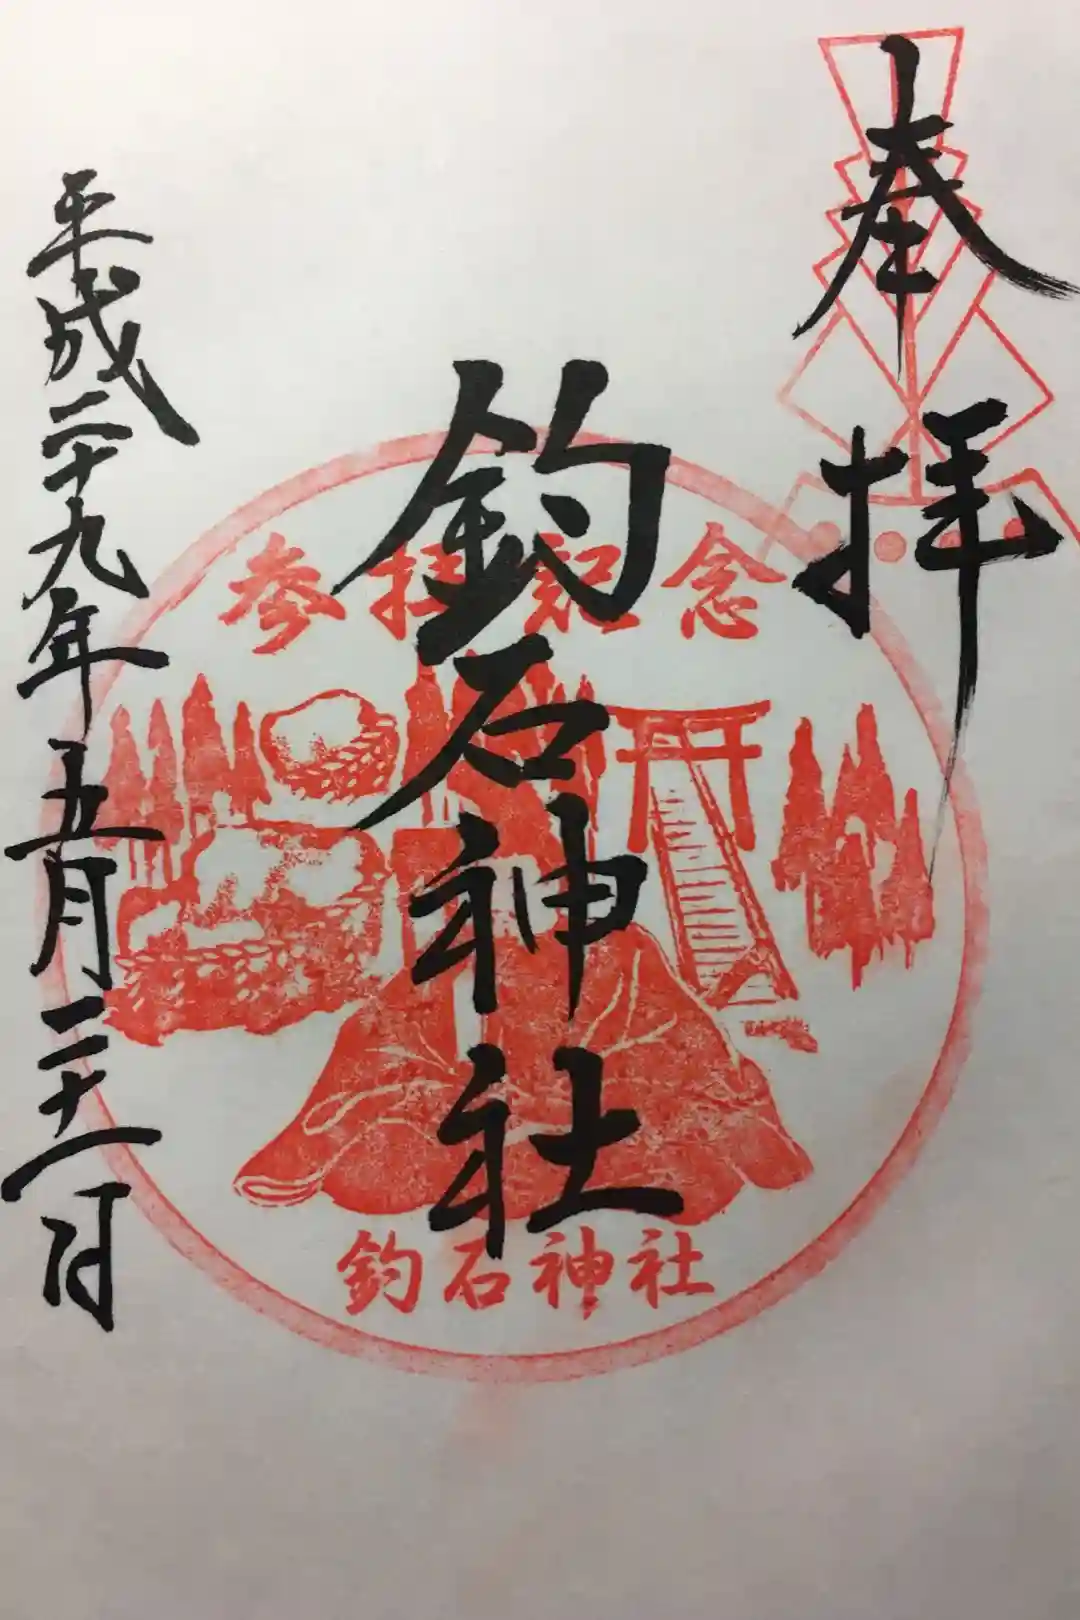 奉拝
釣石神社
平成二十九年五月二十一日
参拝記念
釣石神社